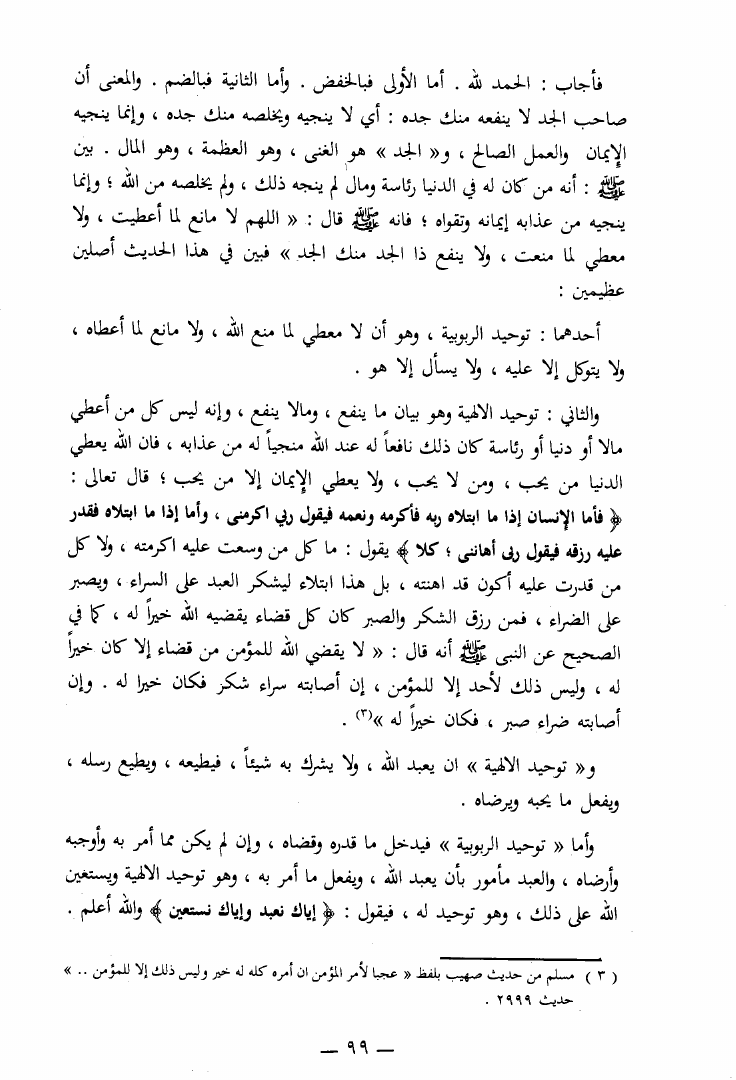 فأجاب : الحمد لله . أما الأولى فبالخفض . وأما الثانية فبالضم . والمعنى أن
صاحب الجد لا ينفعه منك جده : أي لا ينجيه ويخلصه منك جده ، وإنما ينجيه
الإيمان والعمل الصالح ، و« الجد » هو الغنى ، وهو العظمة ، وهو المال . بين
ﷺ : أنه من كان له في الدنيا رئاسة ومال لم ينجه ذلك ، ولم يخلصه من الله ؛ وإنما
ينجيه من عذابه إيمانه وتقواه ؛ فانه ﷺ قال : « اللهم لا مانع لما أعطيت ، ولا
معطي لما منعت ، ولا ينفع ذا الجد منك الجد » فبين في هذا الحديث أصلين
عظيمين :
أحدهما : توحيد الربوبية ، وهو أن لا معطي لما منع الله ، ولا مانع لما أعطاه ،
ولا يتوكل إلا عليه ، ولا يسأل إلا هو .
والثاني : توحيد الالهية وهو بيان ما ينفع ، ومالا ينفع ، وإنه ليس كل من أعطي
مالا أو دنيا أو رئاسة كان ذلك نافعاً له عند الله منجياً له من عذابه ، فان الله يعطي
الدنيا من يحب ، ومن لا يحب ، ولا يعطي الإيمان إلا من يحب ؛ قال تعالى :
﴿ فأما الإنسان إذا ما ابتلاه ربه فأكرمه ونعمه فيقول ربي اكرمنى ، وأما إذا ما ابتلاه فقدر
عليه رزقه فيقول ربى أهاننى ؛ كلا ﴾ يقول : ما كل من وسعت عليه اكرمته ، ولا كل
من قدرت عليه أكون قد اهنته ، بل هذا ابتلاء ليشكر العبد على السراء ، ويصبر
على الضراء ، فمن رزق الشكر والصبر كان كل قضاء يقضيه الله خيراً له ، كما في
الصحيح عن النبى ﷺ أنه قال : « لا يقضي الله للمؤمن من قضاء إلا كان خيراً
له ، وليس ذلك لأحد إلا للمؤمن ، إن أصابته سراء شكر فكان خيرا له . وإن
أصابته ضراء صبر ، فكان خيراً له »(٣) .
و« توحيد الالهية » ان يعبد الله ، ولا يشرك به شيئاً ، فيطيعه ، ويطيع رسله ،
ويفعل ما يحبه ويرضاه .
وأما « توحيد الربوبية » فيدخل ما قدره وقضاه ، وإن لم يكن مما أمر به وأوجبه
وأرضاه ، والعبد مأمور بأن يعبد الله ، ويفعل ما أمر به ، وهو توحيد الالهية ويستغين
الله على ذلك ، وهو توحيد له ، فيقول : ﴿ إياك نعبد وإياك نستعين ﴾ والله أعلم .
( ٣ ) مسلم من حديث صهيب بلفظ « عجبا لأمر المؤمن ان أمره كله له خير وليس ذلك إلا للمؤمن .. »
حديث ٢٩٩٩ .
— ٩٩ —